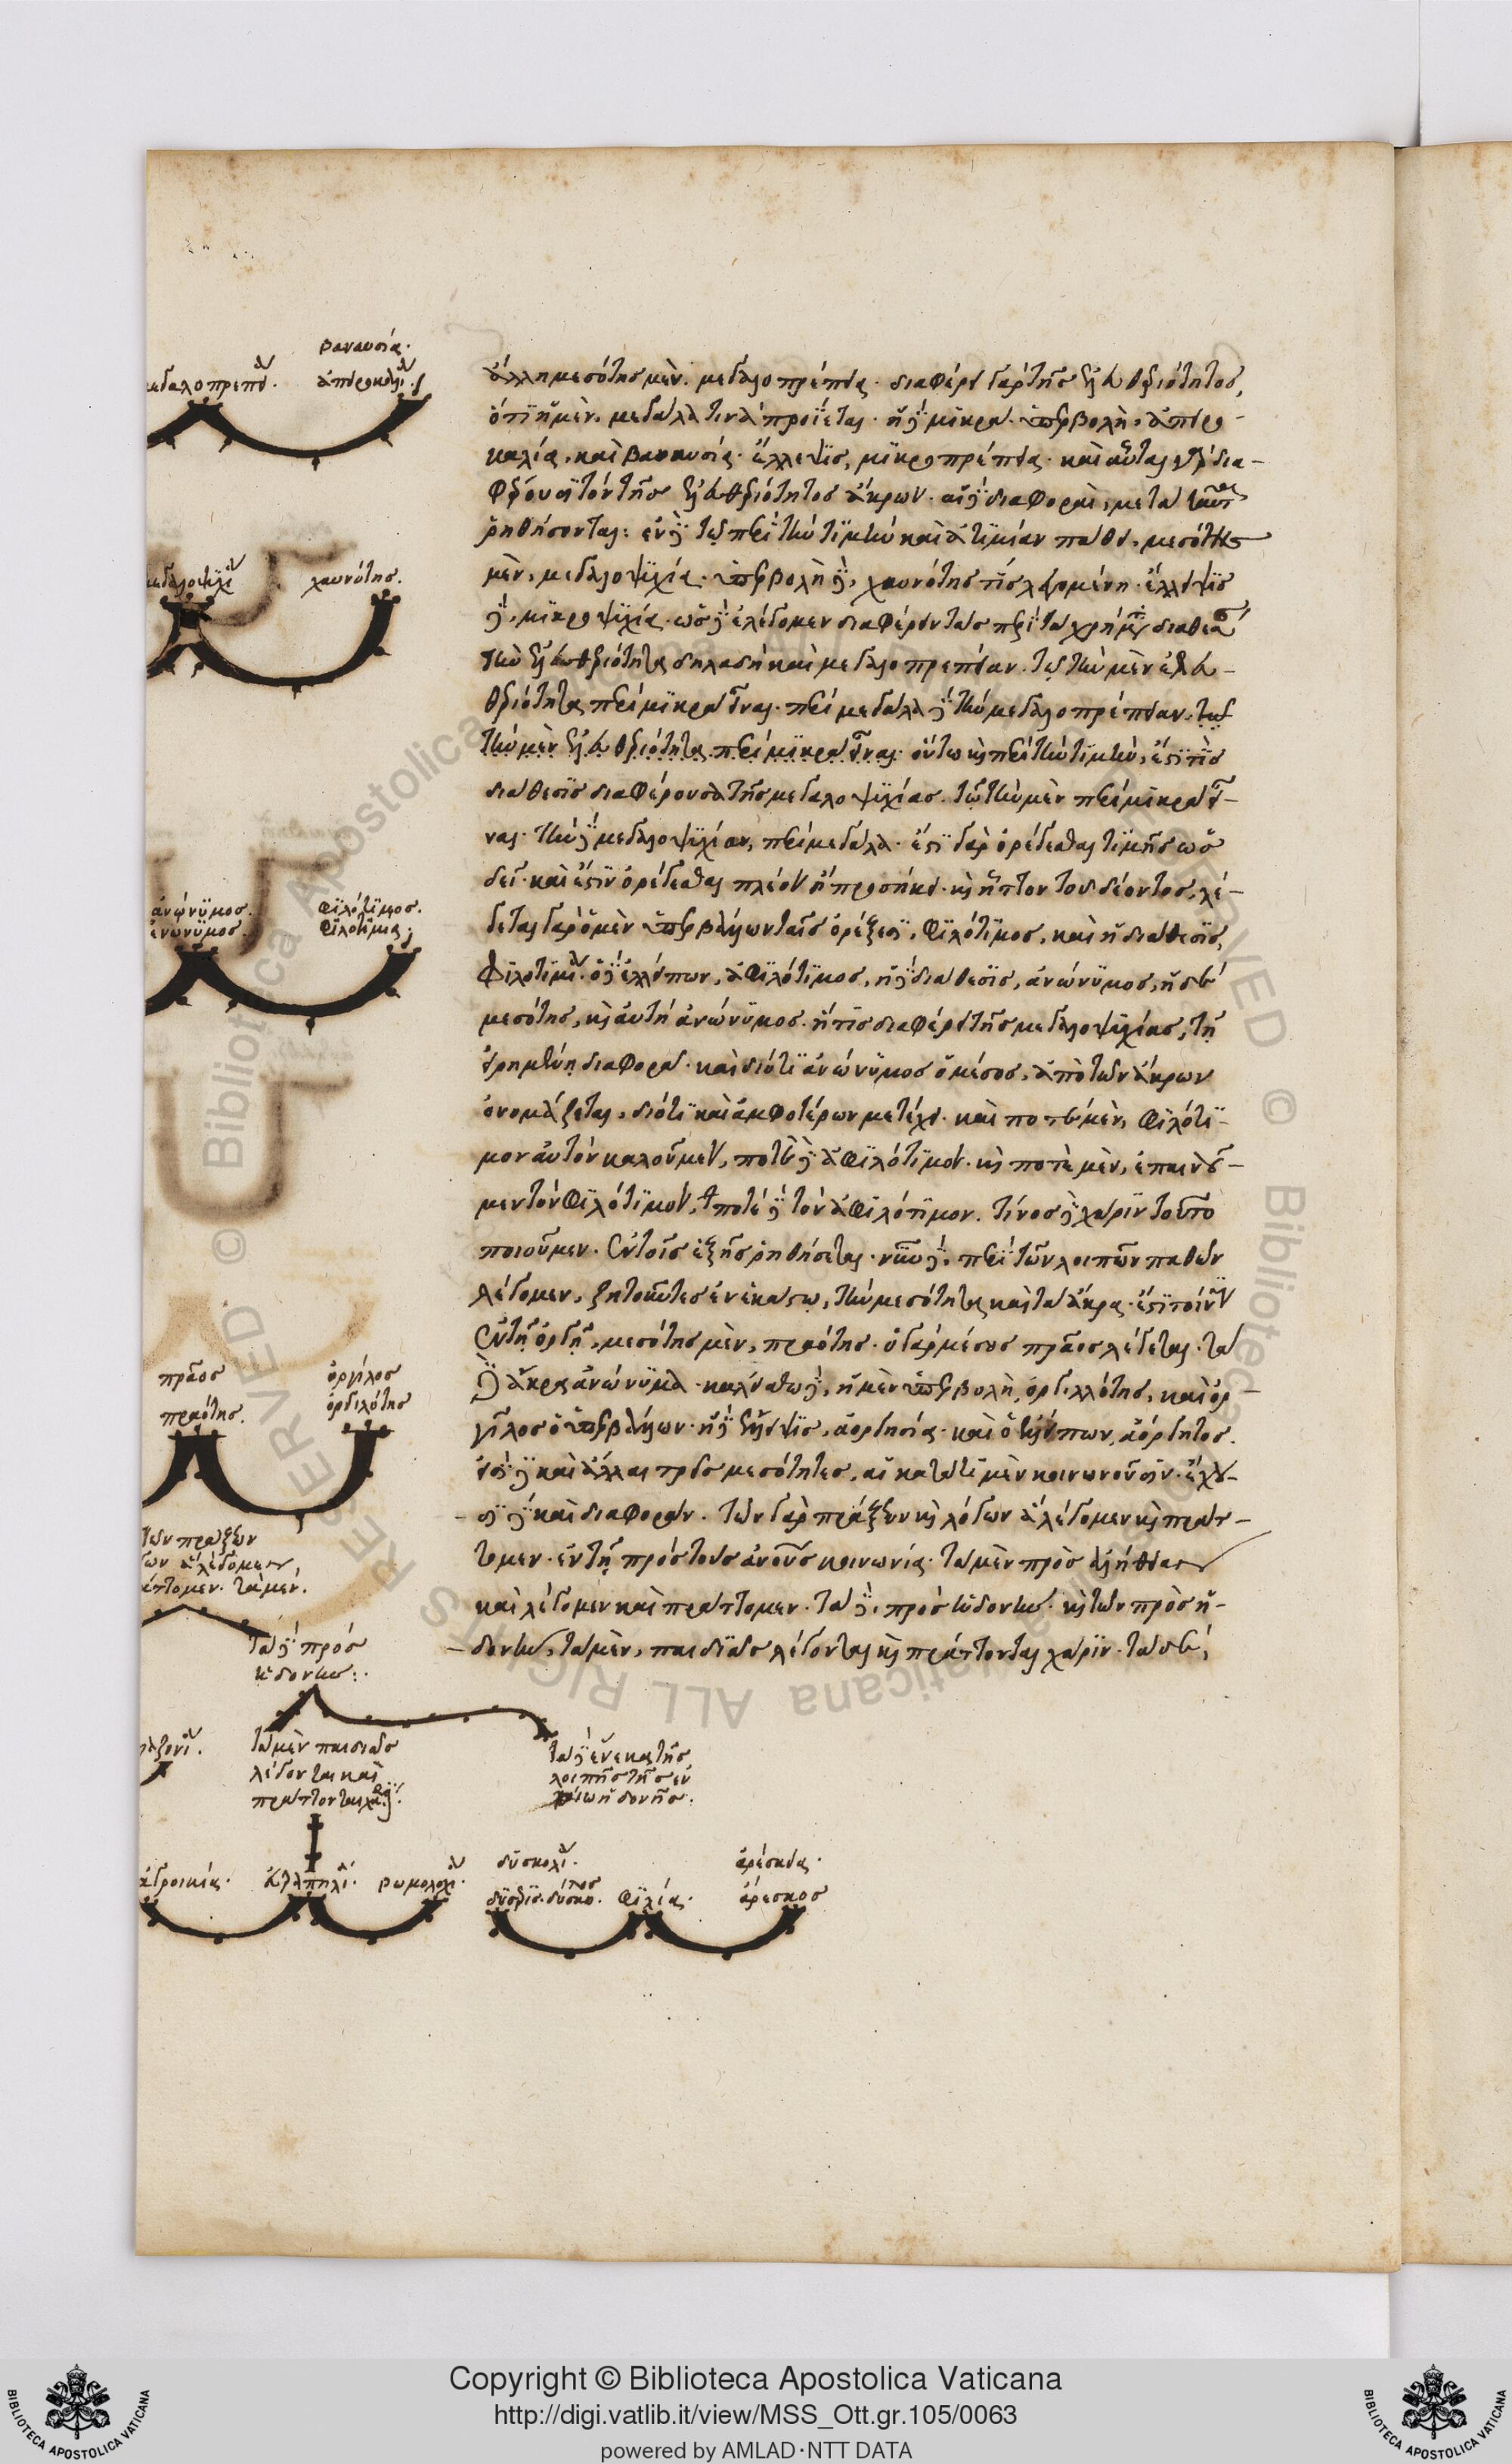 ἄλλη μεσότης μὲν, μεγαλοπρέπεια· διαφέρει γὰρ τῆς ἐλευθεριότητος,
ὅτι ἡ μὲν, μεγάλα τινὰ προΐεται· ἡ δὲ μικρά· ὑπερβολὴ, ἀπειρο-
καλία, καὶ βαναυσία· ἔλλειψις, μικροπρέπεια· καὶ αὗται δὲ δια-
φέρουσι τῶν τῆς ἐλευθεριότητος ἄκρων· αἱ δὲ διαφοραὶ, μετὰ ταῦτα
ῥηθήσονται: ἐν δὲ τῷ περὶ τὴν τιμὴν καὶ ἀτιμίαν πάθει, μεσότης
μὲν, μεγαλοψυχία· ὑπερβολὴ δὲ, χαυνότης τίς λεγομένη· ἔλλειψις
δὲ, μικροψυχία· ὡς δὲ ἐλέγομεν διαφέρειν τὰς περὶ τὰ χρήματα διαθέσεις
τὴν ἐλευθεριότητα δηλαδὴ καὶ μεγαλοπρέπειαν· τῷ τὴν μὲν ἐλευ-
θεριότητα περὶ μικρὰ εἶναι· περὶ μεγάλα δὲ τὴν μεγαλοπρέπειαν· τῷ
τὴν μὲν ἐλευθεριότητα περὶ μικρὰ εἶναι· οὕτω καὶ περὶ τὴν τιμὴν, ἐστί τις
διάθεσις διαφέρουσα τῆς μεγαλοψυχίας· τῷ τὴν μὲν περὶ μικρὰ εἶ-
ναι· τὴν δὲ μεγαλοψυχίαν, περὶ μεγάλα· ἔστι γὰρ ὀρέγεσθαι τιμῆς ὡς
δεῖ· καὶ ἔστιν ὀρέγεσθαι πλέον ἢ προσήκει· καὶ ἧττον τοῦ δέοντος, λέ-
γεται γὰρ ὁ μὲν ὑπερβάλλων ταῖς ὀρέξεσι, φιλότιμος, καὶ ἡ διάθεσις,
φιλοτιμία· ὁ δὲ ἐλλείπων, ἀφιλότιμος, ἡ δὲ διάθεσις, ἀνώνυμος, ἡ δὲ
μεσότης, καὶ αὐτὴ ἀνώνυμος· ἥτις διαφέρει τῆς μεγαλοψυχίας, τῇ
εἰρημένῃ διαφορᾷ· καὶ διότι ἀνώνυμος ὁ μέσος, ἀπὸ τῶν ἄκρων
ὀνομάζεται, διότι καὶ ἀμφοτέρων μετέχει· καὶ ποτὲ μὲν, φιλότι-
μον αὐτὸν καλοῦμεν, ποτὲ δὲ ἀφιλότιμον· καὶ ποτὲ μὲν, ἐπαινοῦ-
μεν τὸν φιλότιμον, ποτὲ δὲ τὸν ἀφιλότιμον. τίνος δὲ χάριν τοῦτο
ποιοῦμεν· ἐν τοῖς ἑξῆς ῥηθήσεται· νῦν δὲ, περὶ τῶν λοιπῶν παθῶν
λέγομεν, ζητοῦντες ἐν ἑκάστῳ, τὴν μεσότητα καὶ τὰ ἄκρα· ἔστι τοίνυν
ἐν τῇ ὀργῇ, μεσότης μὲν, πραότης· ὁ γὰρ μέσος πρᾶος λέγεται· τὰ
δὲ ἄκρα ἀνώνυμα· καλείσθω δὲ, ἡ μὲν ὑπερβολὴ, ὀργιλλότης, καὶ ὀρ-
γίλος ὁ ὑπερβάλλων· ἡ δὲ ἔλλειψις, ἀοργησία· καὶ ὁ ἐλλείπων, ἀόργητος.
εἰσὶ δὲ καὶ ἄλλαι τρεῖς μεσότητες, αἳ κατά τι μὲν κοινωνοῦσιν· ἔχου-
σι δὲ καὶ διαφοράν. τῶν γὰρ πράξεων καὶ λόγων ἃ λέγομεν καὶ πράτ-
τομεν· ἐν τῇ πρὸς τοὺς ἀνους κοινωνίᾳ· τὰ μὲν πρὸς ἀλήθειαν
καὶ λέγομεν καὶ πράττομεν· τὰ δὲ, πρὸς ἡδονὴν· καὶ τῶν πρὸς ἡ-
δονὴν, τὰ μὲν, παιδιᾶς λέγονται καὶ πράττονται χάριν· τὰ δὲ,
βαναυσία·
μεγαλοπρέπεια· ἀπειροκαλία·
μεγαλοψυχία χαυνότης.
ἀνώνυμος. φιλότιμος.
ἀνώνυμος. φιλοτιμία·
πρᾶος ὀργίλος
πραότης. ὀργιλότης
τῶν πράξεων
ἃ λέγομεν
πράττομεν· τὰ μὲν.
τὰ δὲ πρὸς
ἡδονὴν:
τὰ μὲν παιδιᾶς
λέγονται καὶ
πράττονται χάριν·
τὰ δὲ ἕνεκα τῆς
λοιπῆς τῆς ἐν
βίῳ ἡδονῆς.
ἀγροικία· εὐτραπελία· βωμολοχία·
δυσκολία· ἀρέσκεια·
φιλία· ἄρεσκος
Copyright © Biblioteca Apostolica Vaticana
http://digi.vatlib.it/view/MSS_Ott.gr.105/0063
powered by AMLAD·NTT DATA